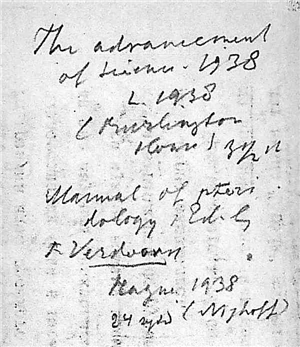 The advancement
of Science. 1938
L. 1938
(Burlington
House)
Manual of pteri
dology, Ed. by
F. Verdoorn
Hague 1938
24 (Nijhoff)